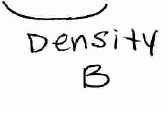 Density
B